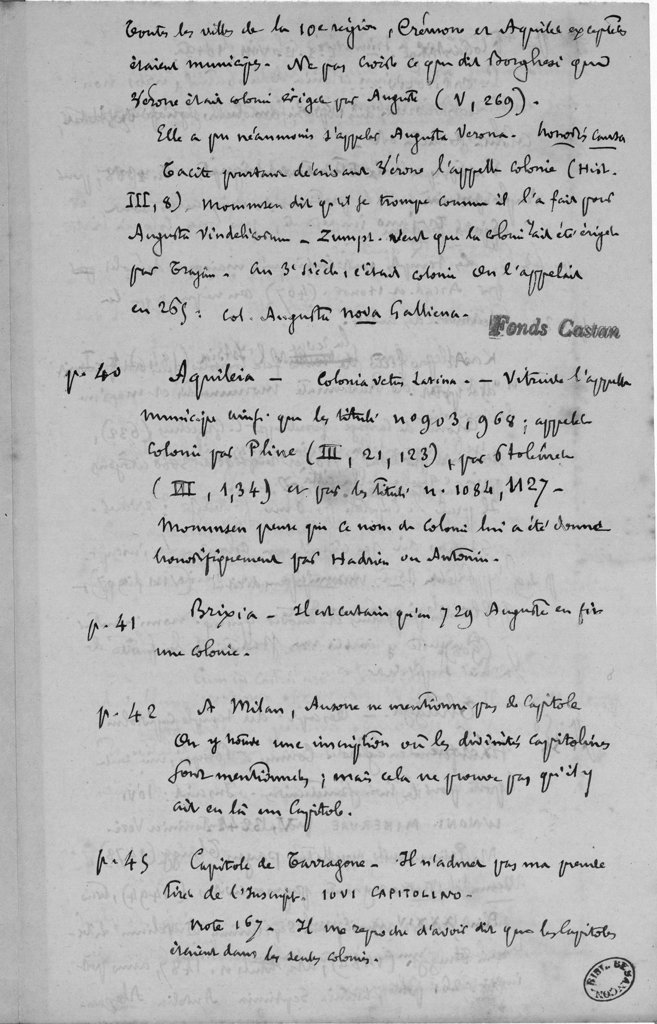 Toutes les villes de la 10e région, Crémone et Aquilée exceptées
étaient municipes. Ne pas croire ce que dit Borghesi que
Vérone était colonie érigée par Auguste (V, 269).
Elle a pu néanmoins s'appeler Augusta Verona. honoris causa
Tacite pourtant décrivant Vérone l'appelle colonie (Hist.
III, 8). Mommsen dit qu'il se trompe comme il l'a fait pour
Augusta Vindelicorum – Zumpt. veut que la colonie ait été érigée
par Trajan. Au 3e siècle, c'était colonie On l'appelait
en 265 : Col. Augusta nova Galliena.
Fonds Castan
p. 40 Aquileia – Colonia vetus Latina. – Vitruve l'appelle
municipe ainsi que les tituli no 903, 968 ; appelée
colonie par Pline (III, 21, 123), par Ptolémée
(III, 1, 34) et par les tituli n. 1084, 1127 –
Mommsen pense que ce nom de colonie lui a été donné
honorifiquement par Hadrien ou Antonin.
p. 41 Brixia – Il est certain qu'en 729 Auguste en fit
une colonie.
p. 42 A Milan, Ausone ne mentionne pas de Capitole
On y trouve une inscription où les divinités capitolines
sont mentionnées ; mais cela ne prouve pas qu'il y
ait eu là un Capitole.
p. 45 Capitole de Tarragone – Il n'admet pas ma preuve
tirée de l'Inscript. IOVI CAPITOLINO.
Note 167. Il me reproche d'avoir dit que les Capitoles
étaient dans les seules colonies.
BIBL. BESANÇON